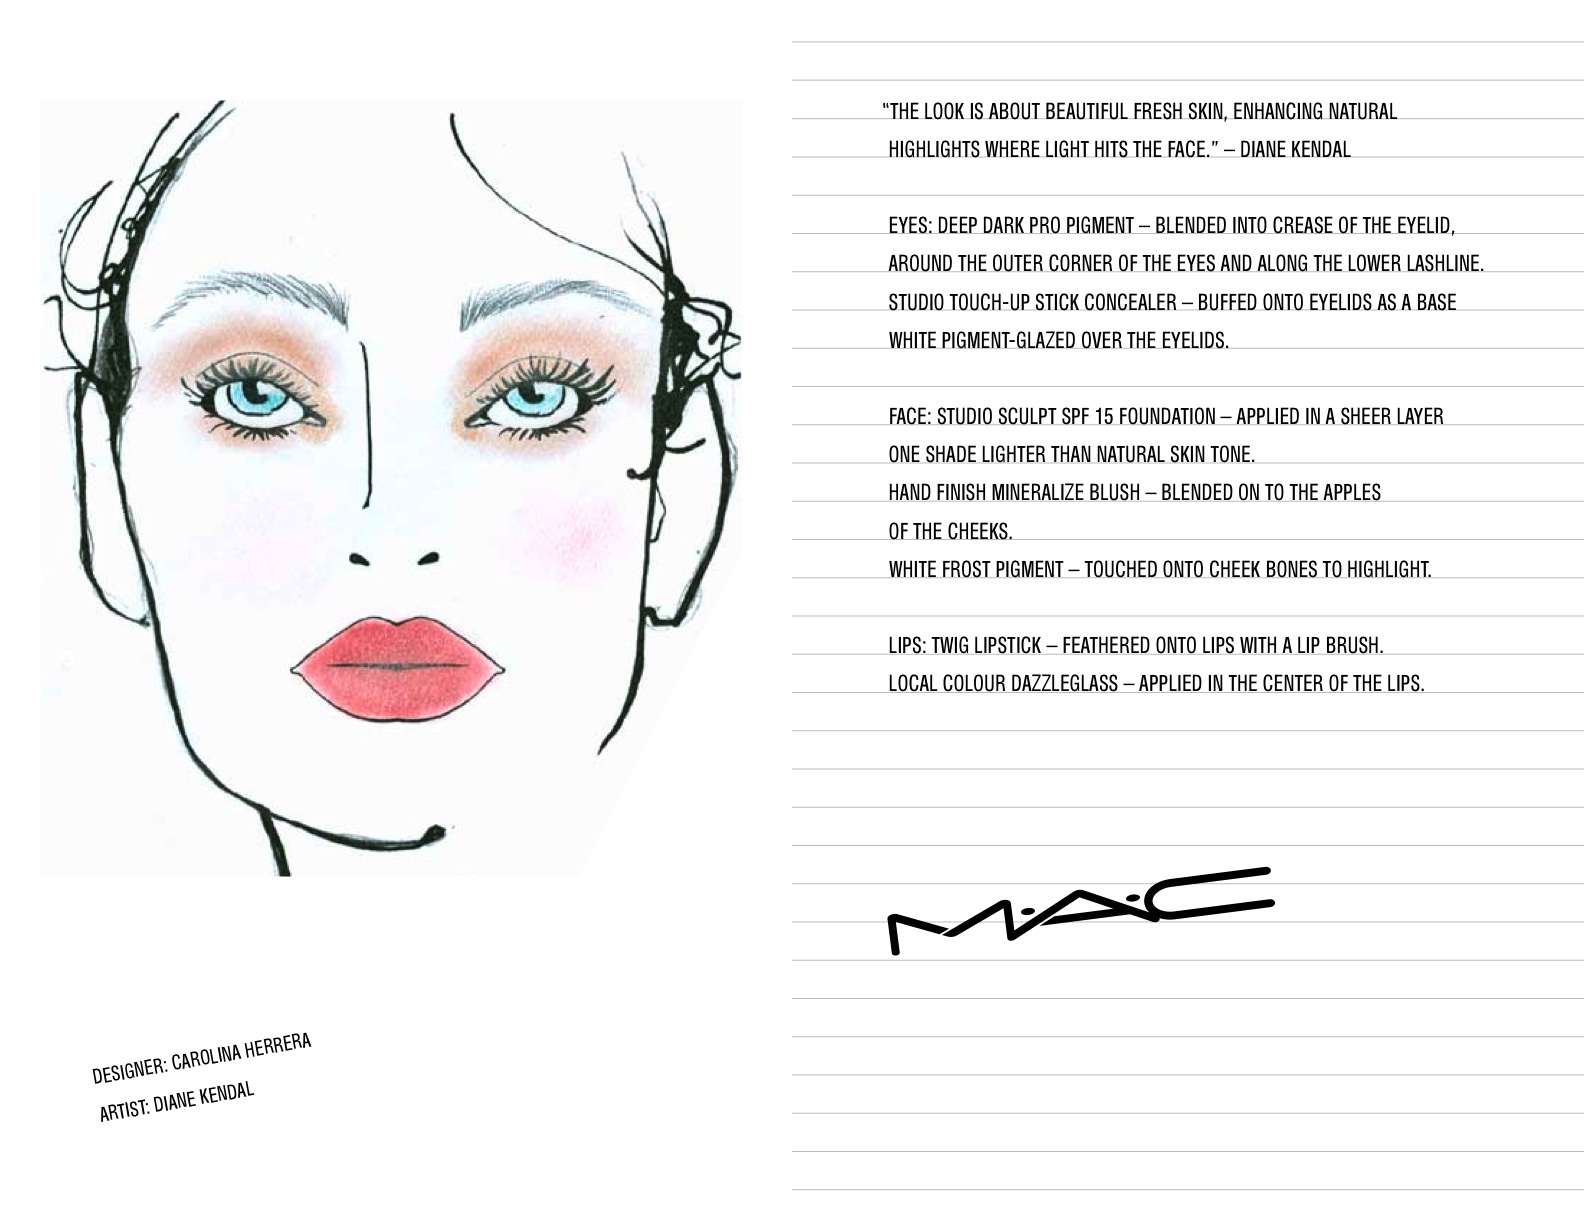 “THE LOOK IS ABOUT BEAUTIFUL FRESH SKIN, ENHANCING NATURAL
HIGHLIGHTS WHERE LIGHT HITS THE FACE.” – DIANE KENDAL
EYES: DEEP DARK PRO PIGMENT – BLENDED INTO CREASE OF THE EYELID,
AROUND THE OUTER CORNER OF THE EYES AND ALONG THE LOWER LASHLINE.
STUDIO TOUCH-UP STICK CONCEALER – BUFFED ONTO EYELIDS AS A BASE
WHITE PIGMENT-GLAZED OVER THE EYELIDS.
FACE: STUDIO SCULPT SPF 15 FOUNDATION – APPLIED IN A SHEER LAYER
ONE SHADE LIGHTER THAN NATURAL SKIN TONE.
HAND FINISH MINERALIZE BLUSH – BLENDED ON TO THE APPLES
OF THE CHEEKS.
WHITE FROST PIGMENT – TOUCHED ONTO CHEEK BONES TO HIGHLIGHT.
LIPS: TWIG LIPSTICK – FEATHERED ONTO LIPS WITH A LIP BRUSH.
LOCAL COLOUR DAZZLEGLASS – APPLIED IN THE CENTER OF THE LIPS.
M·A·C
DESIGNER: CAROLINA HERRERA
ARTIST: DIANE KENDAL